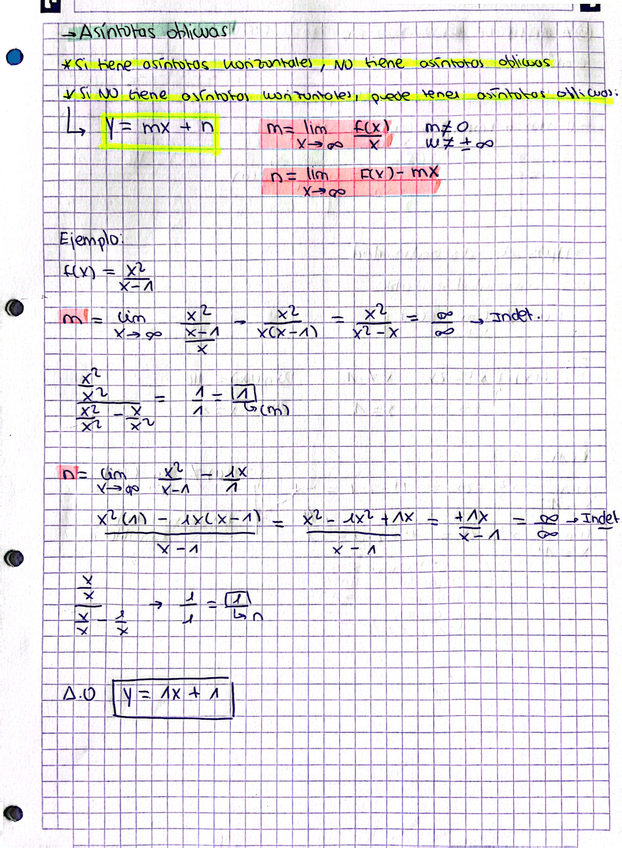 → Asíntotas oblicuas
* Si tiene asíntotas horizontales, NO tiene asíntotas oblicuas
* Si NO tiene asíntotas horizontales, puede tener asíntotas oblicuas:
↳ y = mx + n m = lim x→∞ f(x)/x m≠0 m≠ ±∞
n = lim x→∞ f(x) - mx
Ejemplo:
f(x) = x²/(x-1)
m = lim x→∞ (x²/(x-1))/x → x²/(x(x-1)) = x²/(x²-x) = ∞/∞ → Indet.
(x²/x²)/(x²/x² - x/x²) = 1/1 = 1 ↳(m)
n = lim x→∞ x²/(x-1) - 1x/1
(x²(1) - 1x(x-1))/(x-1) = (x² - 1x² + 1x)/(x-1) = +1x/(x-1) = ∞/∞ → Indet
(x/x)/(x/x - 1/x) → 1/1 = 1 ↳n
A.O y = 1x + 1